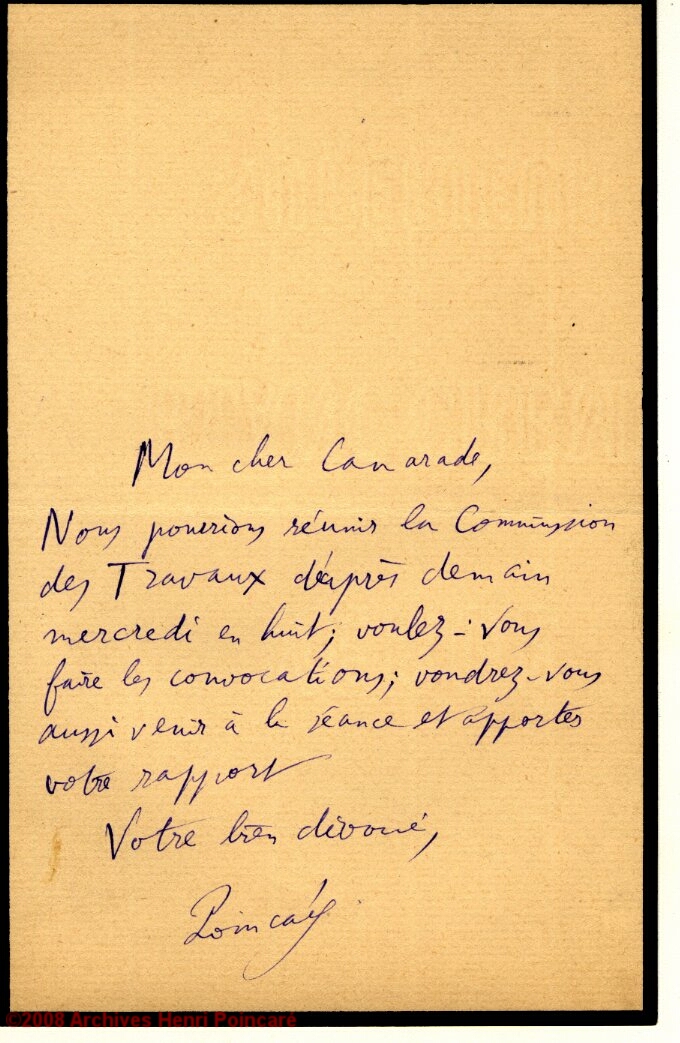 Mon cher Camarade,
Nous pourrions réunir la Commission
des Travaux d'après demain
mercredi en huit; voulez-vous
faire les convocations; voudrez-vous
aussi venir à la séance et apporter
votre rapport
Votre bien dévoué,
Poincaré
©2008 Archives Henri Poincaré